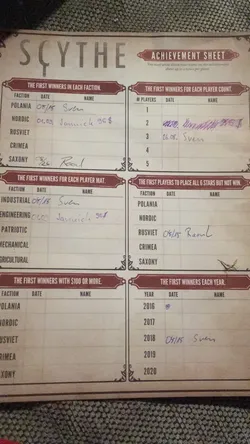 SCYTHE
ACHIEVEMENT SHEET
THE FIRST WINNERS IN EACH FACTION.
FACTION DATE NAME
POLANIA 04/05 Sven
NORDIC 01.05 Jannick 90$
RUSVIET
CRIMEA
SAXONY Raoul
THE FIRST WINNERS FOR EACH PLAYER COUNT.
# PLAYERS DATE NAME
1
2
3 Sven
4
5
THE FIRST WINNERS FOR EACH PLAYER MAT.
DATE NAME
INDUSTRIAL 04/05 Sven
ENGINEERING 01.05 Jannick 90$
PATRIOTIC
MECHANICAL
AGRICULTURAL
THE FIRST PLAYERS TO PLACE ALL 6 STARS BUT NOT WIN.
FACTION DATE NAME
POLANIA
NORDIC
RUSVIET 04/05 Raoul
CRIMEA
SAXONY
THE FIRST WINNERS WITH $100 OR MORE.
FACTION DATE NAME
POLANIA
NORDIC
RUSVIET
CRIMEA
SAXONY
THE FIRST WINNERS EACH YEAR.
YEAR DATE NAME
2016
2017
2018 04/05 Sven
2019
2020